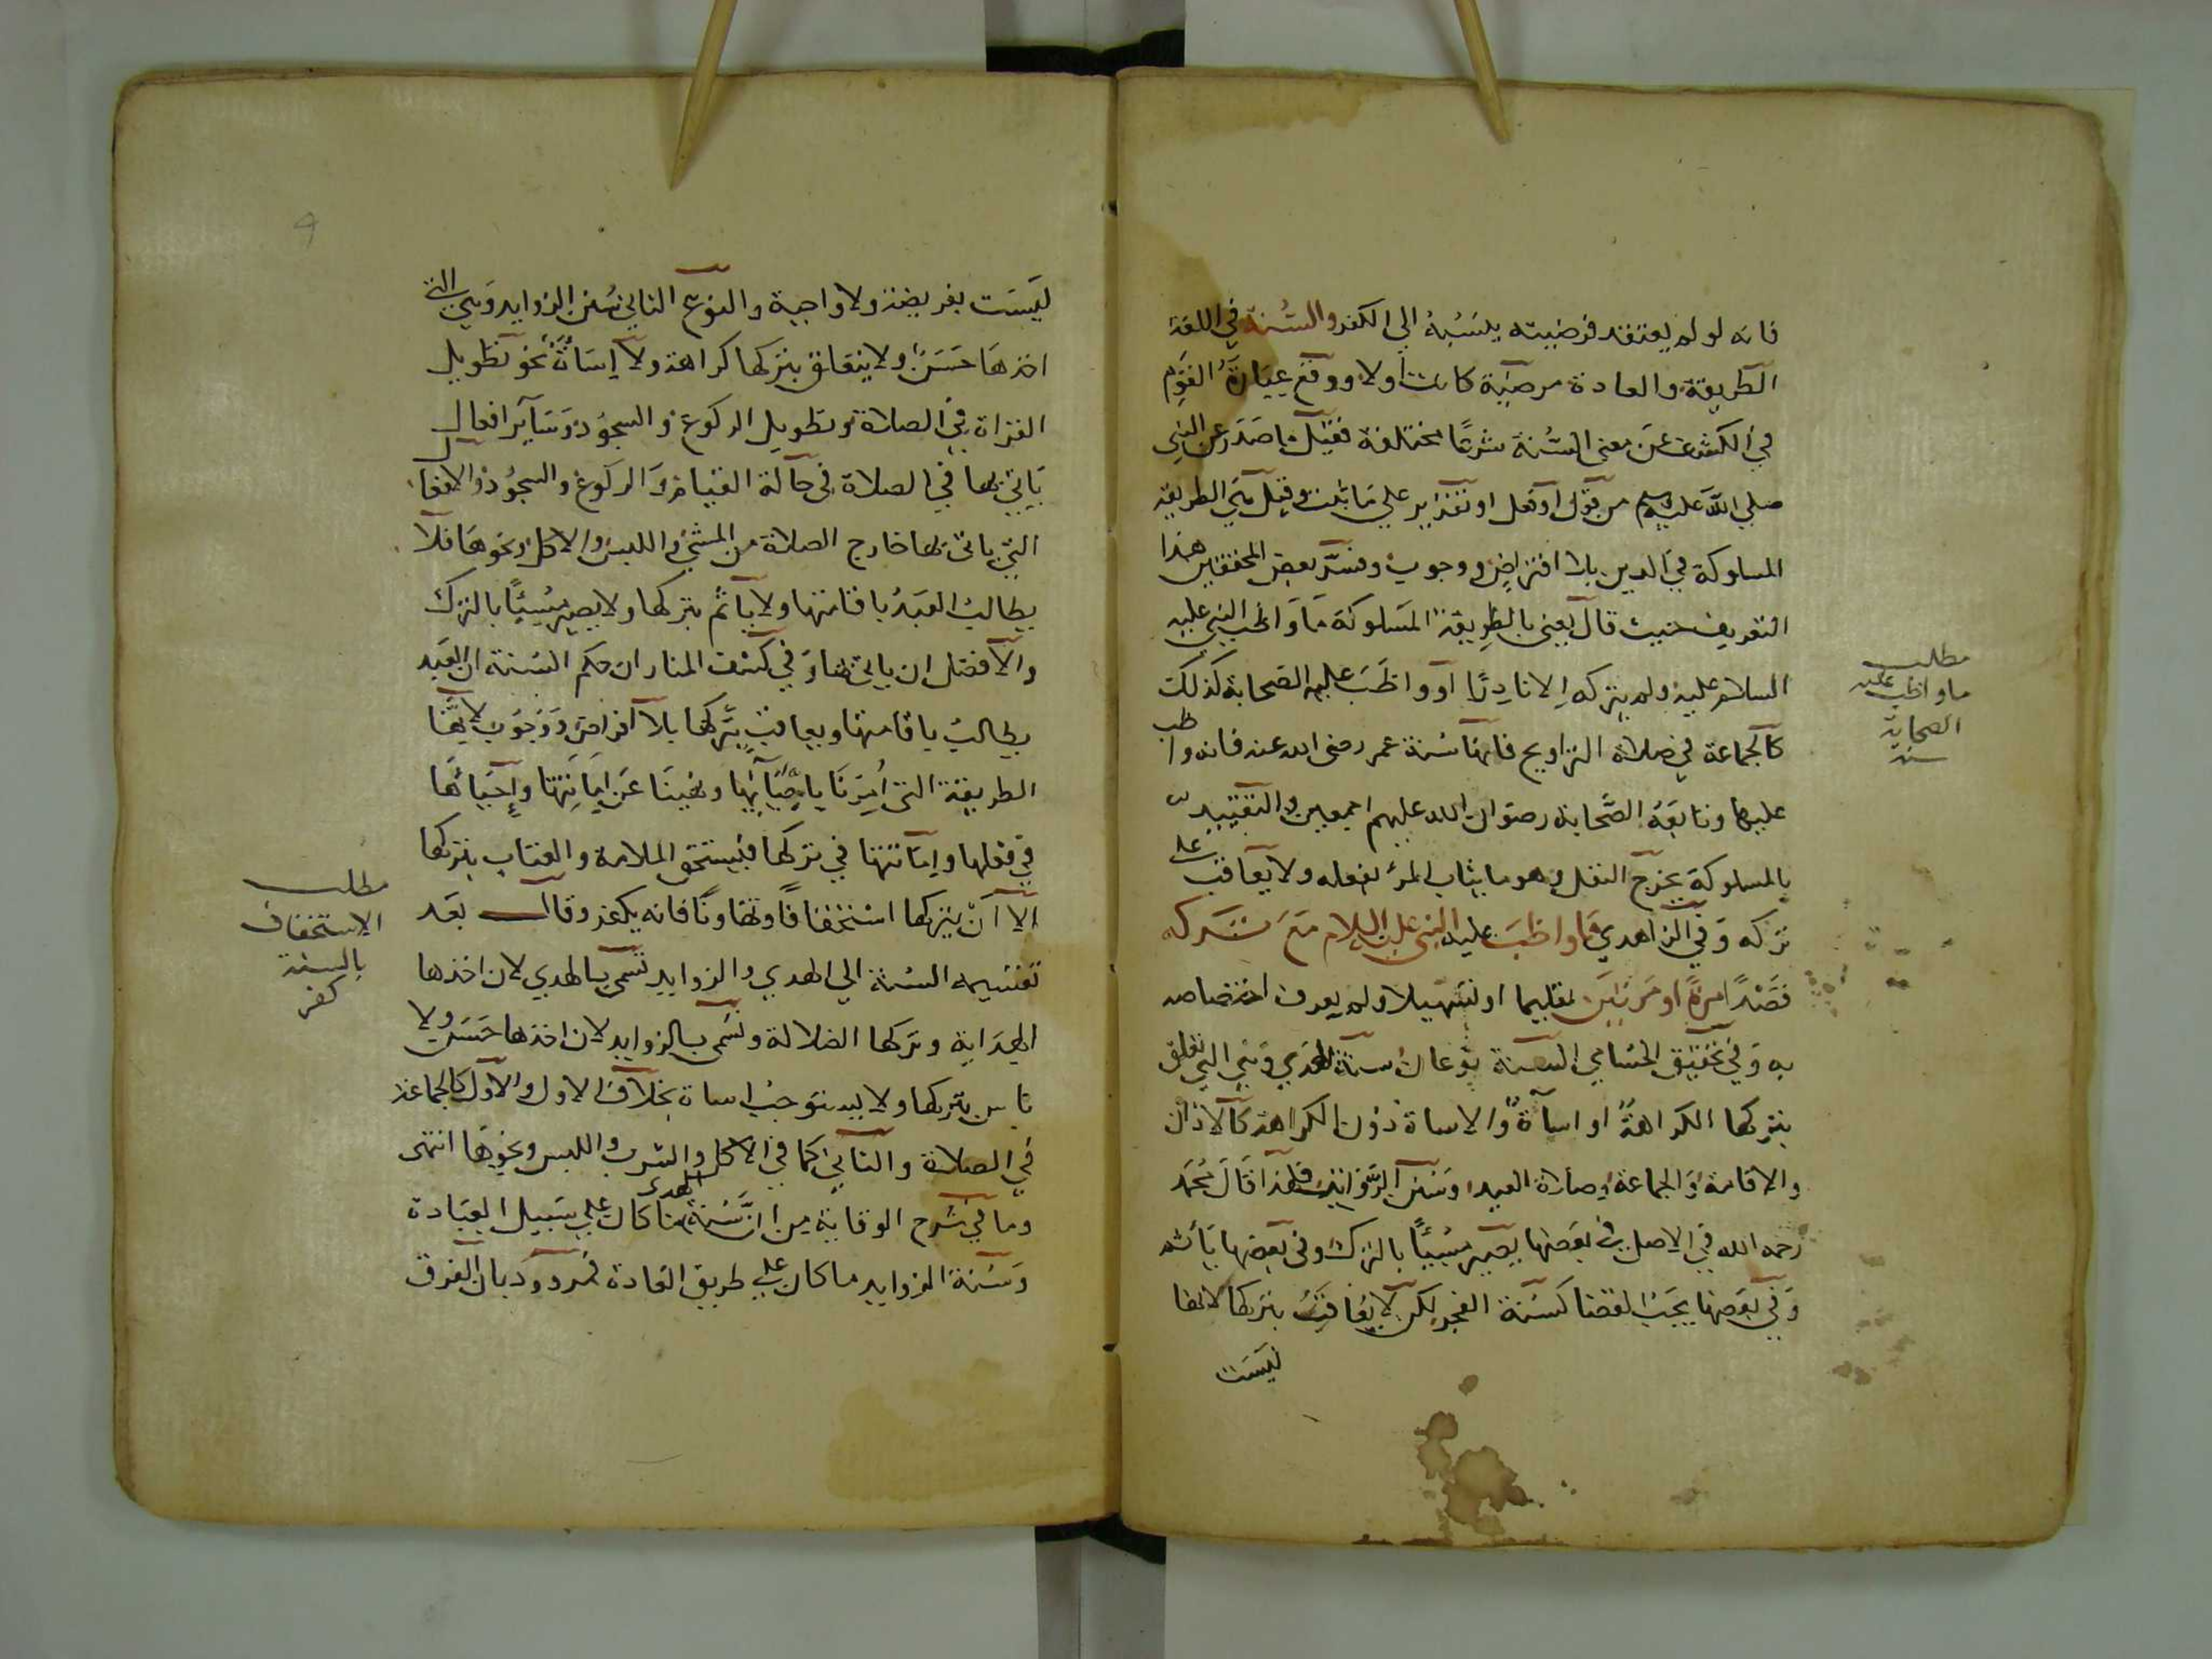 فانه لو لم يعتقد فرضيته ينسبه الي الكفر والسُنة في اللغة
الطريقة والعادة مرضيّة كانت اولا ووقع عبارة القوم
في الكشف عن معنى السُنة شرعًا مختلفة فقيل ما صدر عن النبي
صلي الله عليه وسلم من قول او فعل او تقرير علي ما ثبت وقيل هي الطريقة
المسلوكة في الدين بلا افتراض ووجوب وفسّر بعض المحققين هذا
التعريف حيث قال يعني بالطريقة المسلوكة ما واظب النبي عليه
السلام عليه ولم يتركه الا نادرًا او واظب عليه الصحابة كذلك
كالجماعة في صلاة التراويح فانها سُنة عمر رضى الله عنه فانه واظب
عليها وتابعه الصّحابة رضوان الله عليهم اجمعين والتقييد
بالمسلوكة يخرج النفل وهو ما يثاب المرء بفعله ولا يعاقب على
تركه وفي الزاهدي ما واظب عليه النبي عليه السلام مع تركه
قصدًا مرة او مرتين تعليما او تسهيلا ولم يعرف اختصاصه
به وفي تحقيق الحسامي السنة نوعان سنة الهدي وهي التي تعلق
بتركها الكراهة او اساءة والاساة دون الكراهة كالاذان
والاقامة والجماعة وصلاة العيد وسنن الرواتب فلهذا قال محمد
رحمه الله في الاصل في بعضها يصير مسيئًا بالترك وفي بعضها يأثم
وفي بعضها يجب القضا كسنة الفجر لكن لا يعاقب بتركها لانها
ليست
مطلب
ما واظب عليه
الصحابة
سنة
ليست بفريضة ولا واجبة والنوع الثاني سُنن الزوايد وهي التي
اخذها حسن ولا يتعلق بتركها كراهة ولا إساة نحو تطويل
القراة في الصلاة وتطويل الركوع والسجود وساير افعال
ياتي بها في الصلاة في حالة القيام والركوع والسجود والافعال
التي ياتي بها خارج الصلاة من المشي واللبس والاكل ونحوها فلا
يطالب العبد باقامتها ولا ياثم بتركها ولا يصير مسيئًا بالترك
والافضل ان ياتي بها وفي كشف المنار ان حكم السُنة ان العبد
يطالب باقامتها ويعاقب بتركها بلا افراض ووجوب لانها
الطريقة التي اُمرنا باحيآئها ونهينا عن اماتتها وإحياءها
في فعلها واماتتها في تركها فيستحق الملامة والعتاب بتركها
الا انّ يتركها استخفافًا وتهاونًا فانه يكفر وقال بعد
تقسيمه السنة الي الهدي والزوايد تسمى بالهدي لان اخذها
الهداية وتركها الضلالة وتسمى بالزوايد لان اخذها حسن ولا
باس بتركها ولا يستوجب اساة بخلاف الاول والاول كالجماعة
في الصلاة والثاني كما في الاكل والشرب واللبس ونحوها انتهى
وما في شرح الوقاية من انّ سُنة الهدى ما كان علي سبيل العبادة
وسنة الزوايد ما كان علي طريق العادة فمردود بان الفرق
مطلب
الاستخفاف
بالسنة
كفر